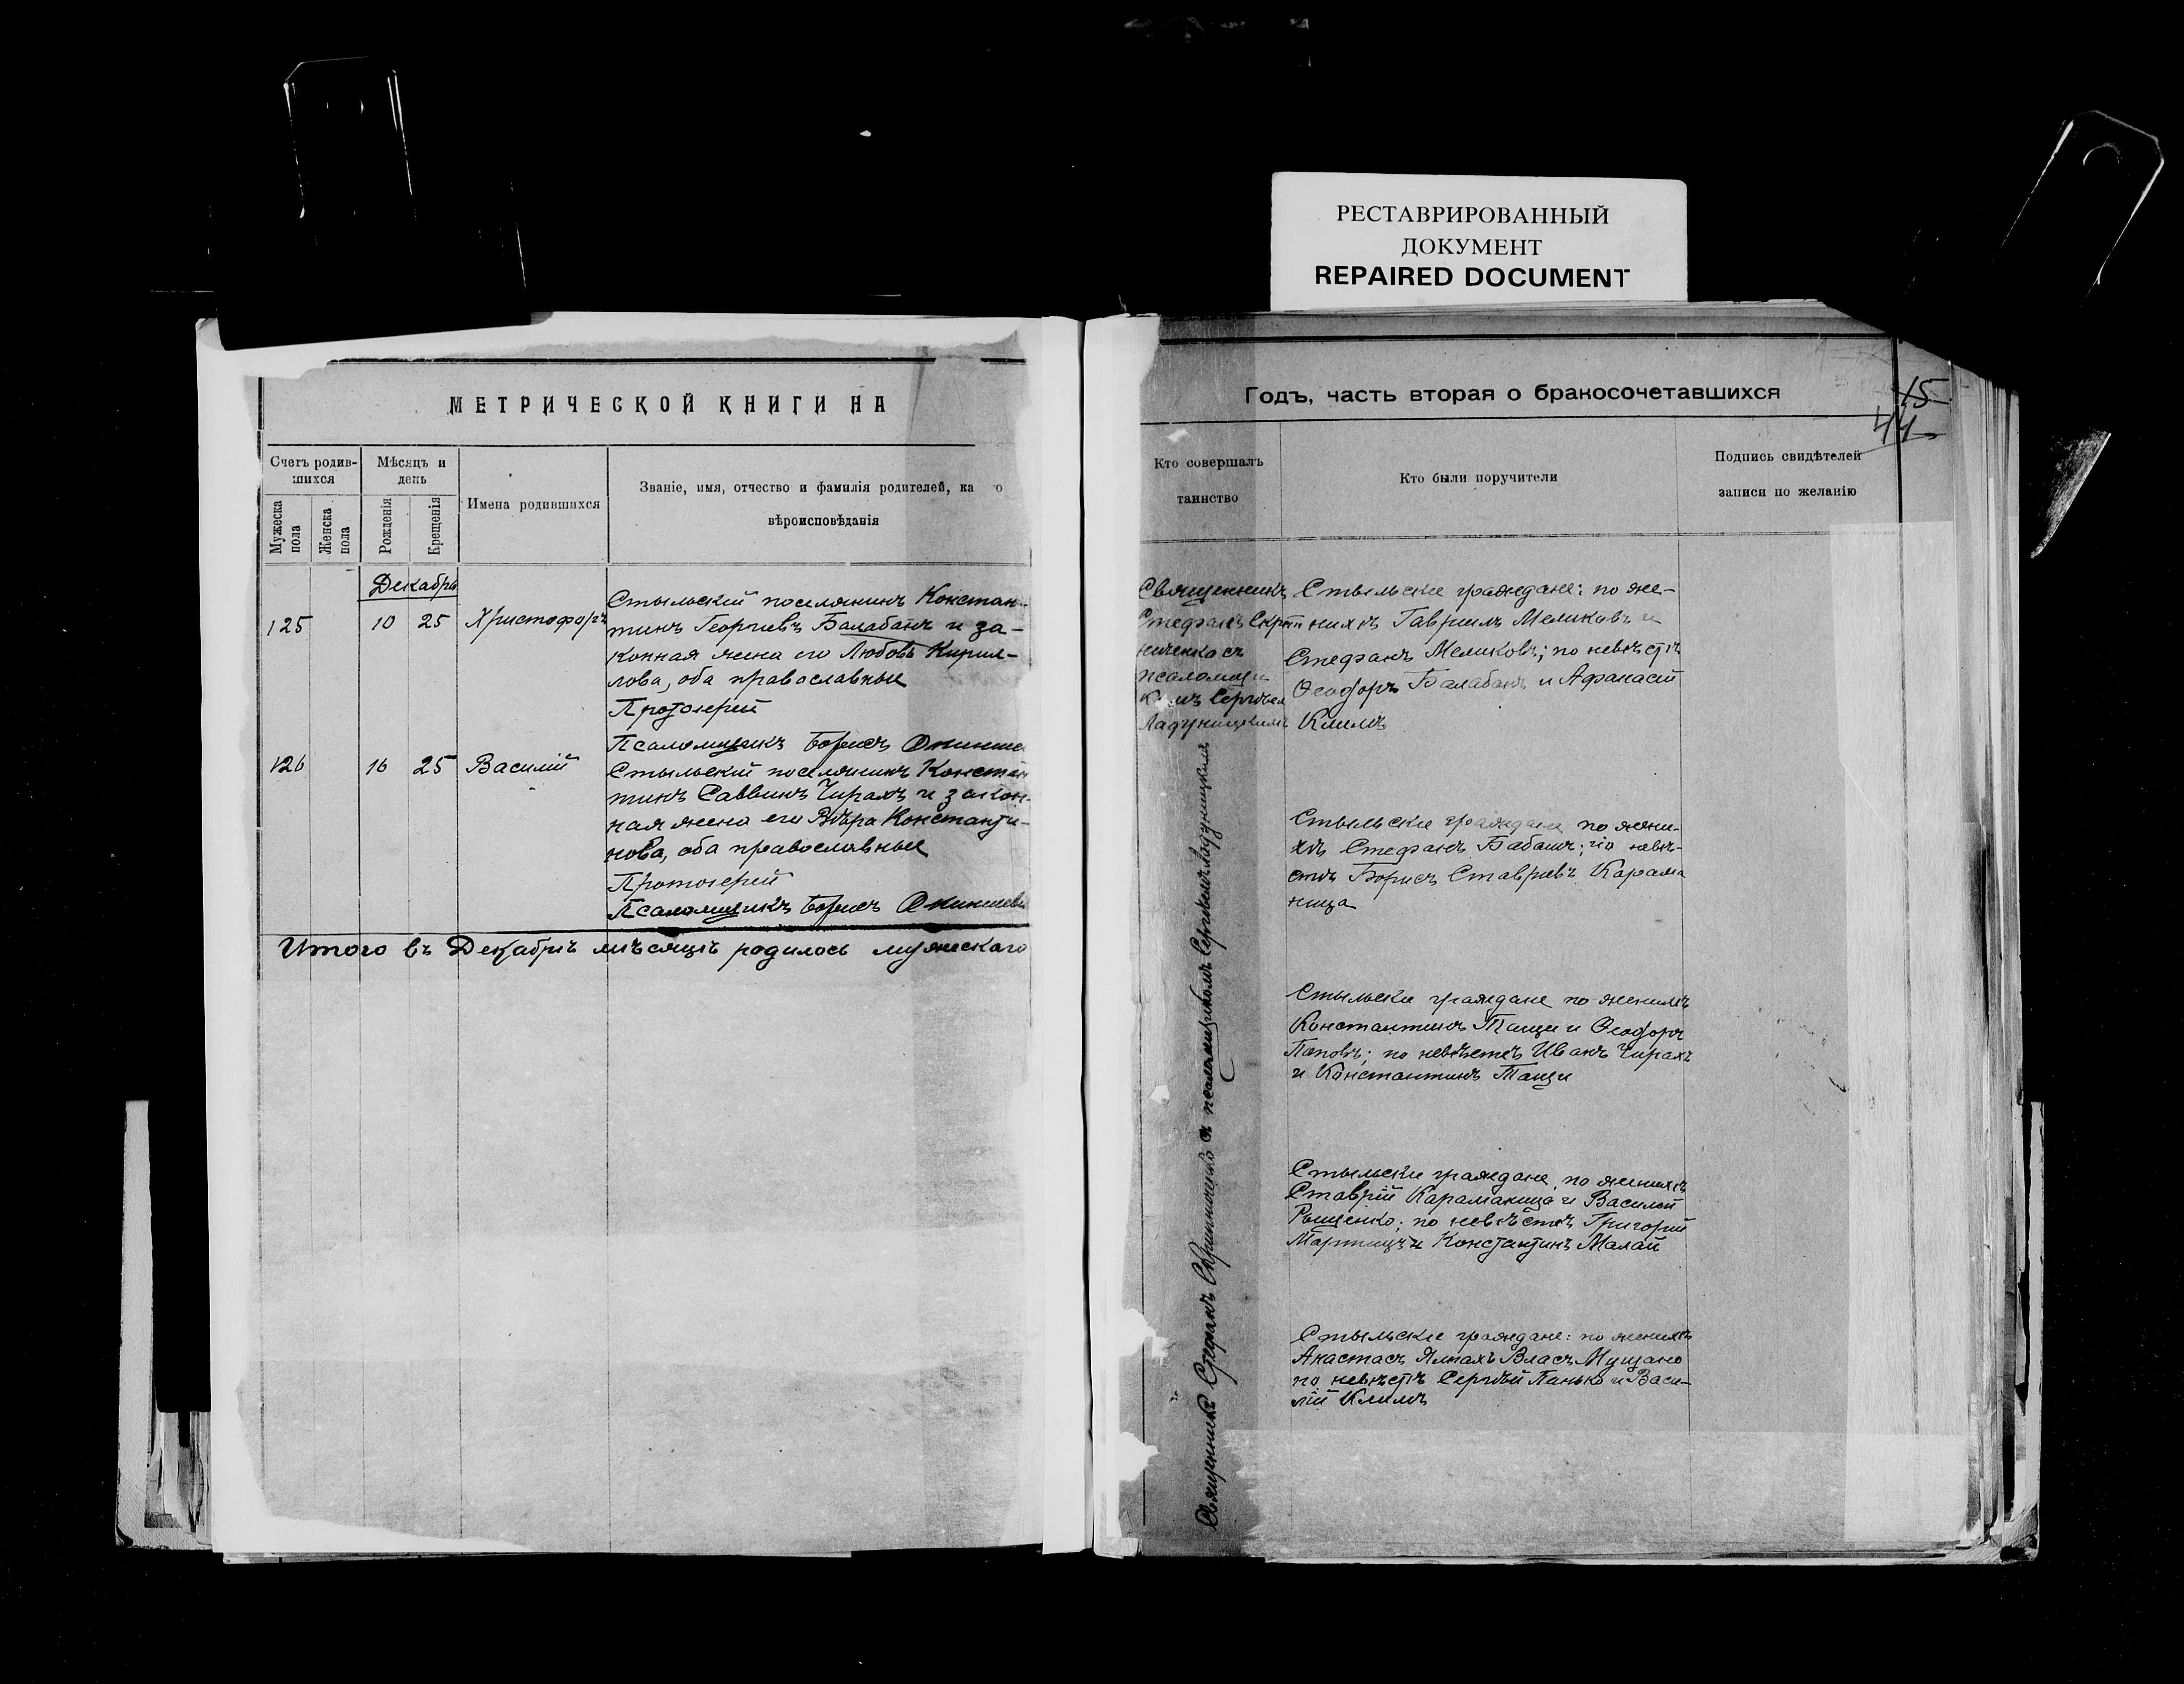 РЕСТАВРИРОВАННЫЙ
ДОКУМЕНТ
REPAIRED DOCUMENT
МЕТРИЧЕСКОЙ КНИГИ НА
Счетъ родив-
шихся
Мѣсяцъ и
день
Мужеска
пола
Женска
пола
Рожденія
Крещенія
Имена родившихся
Званіе, имя, отчество и фамилія родителей, ка о
вѣроисповѣданія
Декабрь
125 10 25 Христофоръ
Стыльскій поселянинъ Констан-
тинъ Георгіевъ Балабанъ и за-
конная жена его Любовь Кирил-
лова, оба православные
Протоіерей
Псаломщикъ Борисъ
126 16 25 Василій
Стыльскій поселянинъ Констан
тинъ Саввинъ Чирахъ и закон-
ная жена его Вѣра Константи-
нова, оба православные
Протоіерей
Псаломщикъ Борисъ
Итого въ Декабрѣ мѣсяцѣ родилось мужескаго
Годъ, часть вторая о бракосочетавшихся
15
44
Кто совершалъ
таинство
Кто были поручители
Подпись свидѣтелей
записи по желанію
Священникъ
Стефанъ Скрип
ниченко съ
псаломщи
к мъ Сергѣемъ
Ладуницкимъ
Священникъ Стефанъ Скрипниченко съ псаломщикомъ Сергѣемъ Ладуницкимъ
Стыльскіе граждане: по же-
нихѣ Гавриилъ Меликовъ и
Стефанъ Меликовъ; по невѣстѣ
Ѳеодоръ Балабанъ и Афанасій
Климъ
Стыльскіе граждане по жени-
хѣ Стефанъ Бабашъ; по невѣ-
стѣ Борисъ Ставріевъ Карама
ница
Стыльскіе граждане по женихѣ
Константинъ Тащи и Ѳеодоръ
Поповъ; по невѣстѣ Иванъ Чирахъ
и Константинъ Тащи
Стыльскіе граждане, по женихѣ
Ставрій Караманица и Василій
Рыщенко; по невѣстѣ Григорій
и Константинъ Малай
Стыльскіе граждане: по женихѣ
Анастасъ Ялпахъ Власъ
по невѣстѣ Сергѣй Панько и Васи-
лій Климъ